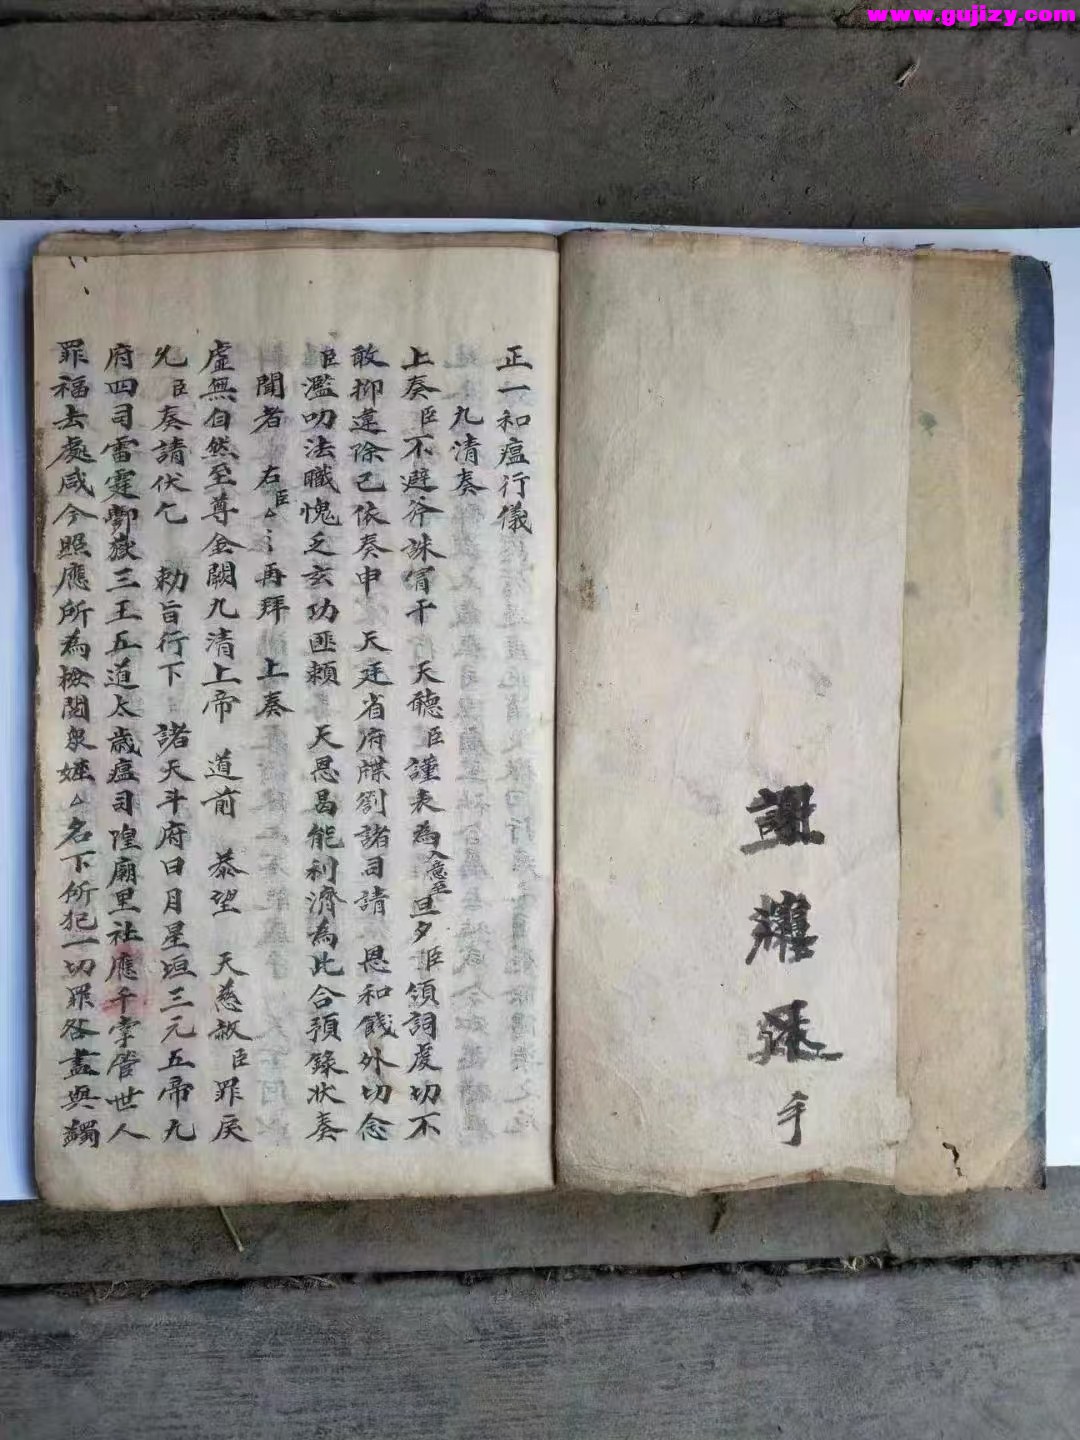 www.gujizy.com
手
正一和瘟行儀
九清奏
上奏臣不避斧誅冒干 天聽臣謹表為入意至旦夕臣領詞虔切不
敢抑違除已依奏申 天廷省府牒劄諸司請 恩和餞外切念
臣濫叨法職愧乏玄功匪賴 天恩曷能利濟為此合預錄狀奏
聞者 右臣△△再拜 上奏
虛無自然至尊金闕九清上帝 道前 恭望 天慈赦臣罪戾
允臣奏請伏乞 勅旨行下 諸天斗府日月星垣三元五帝九
府四司雷霆酆嶽三王五道太歲瘟司隍廟里社應干掌管世人
罪福去處咸令照應所為檢閱泉姪△名下所犯一切罪咎盡與蠲